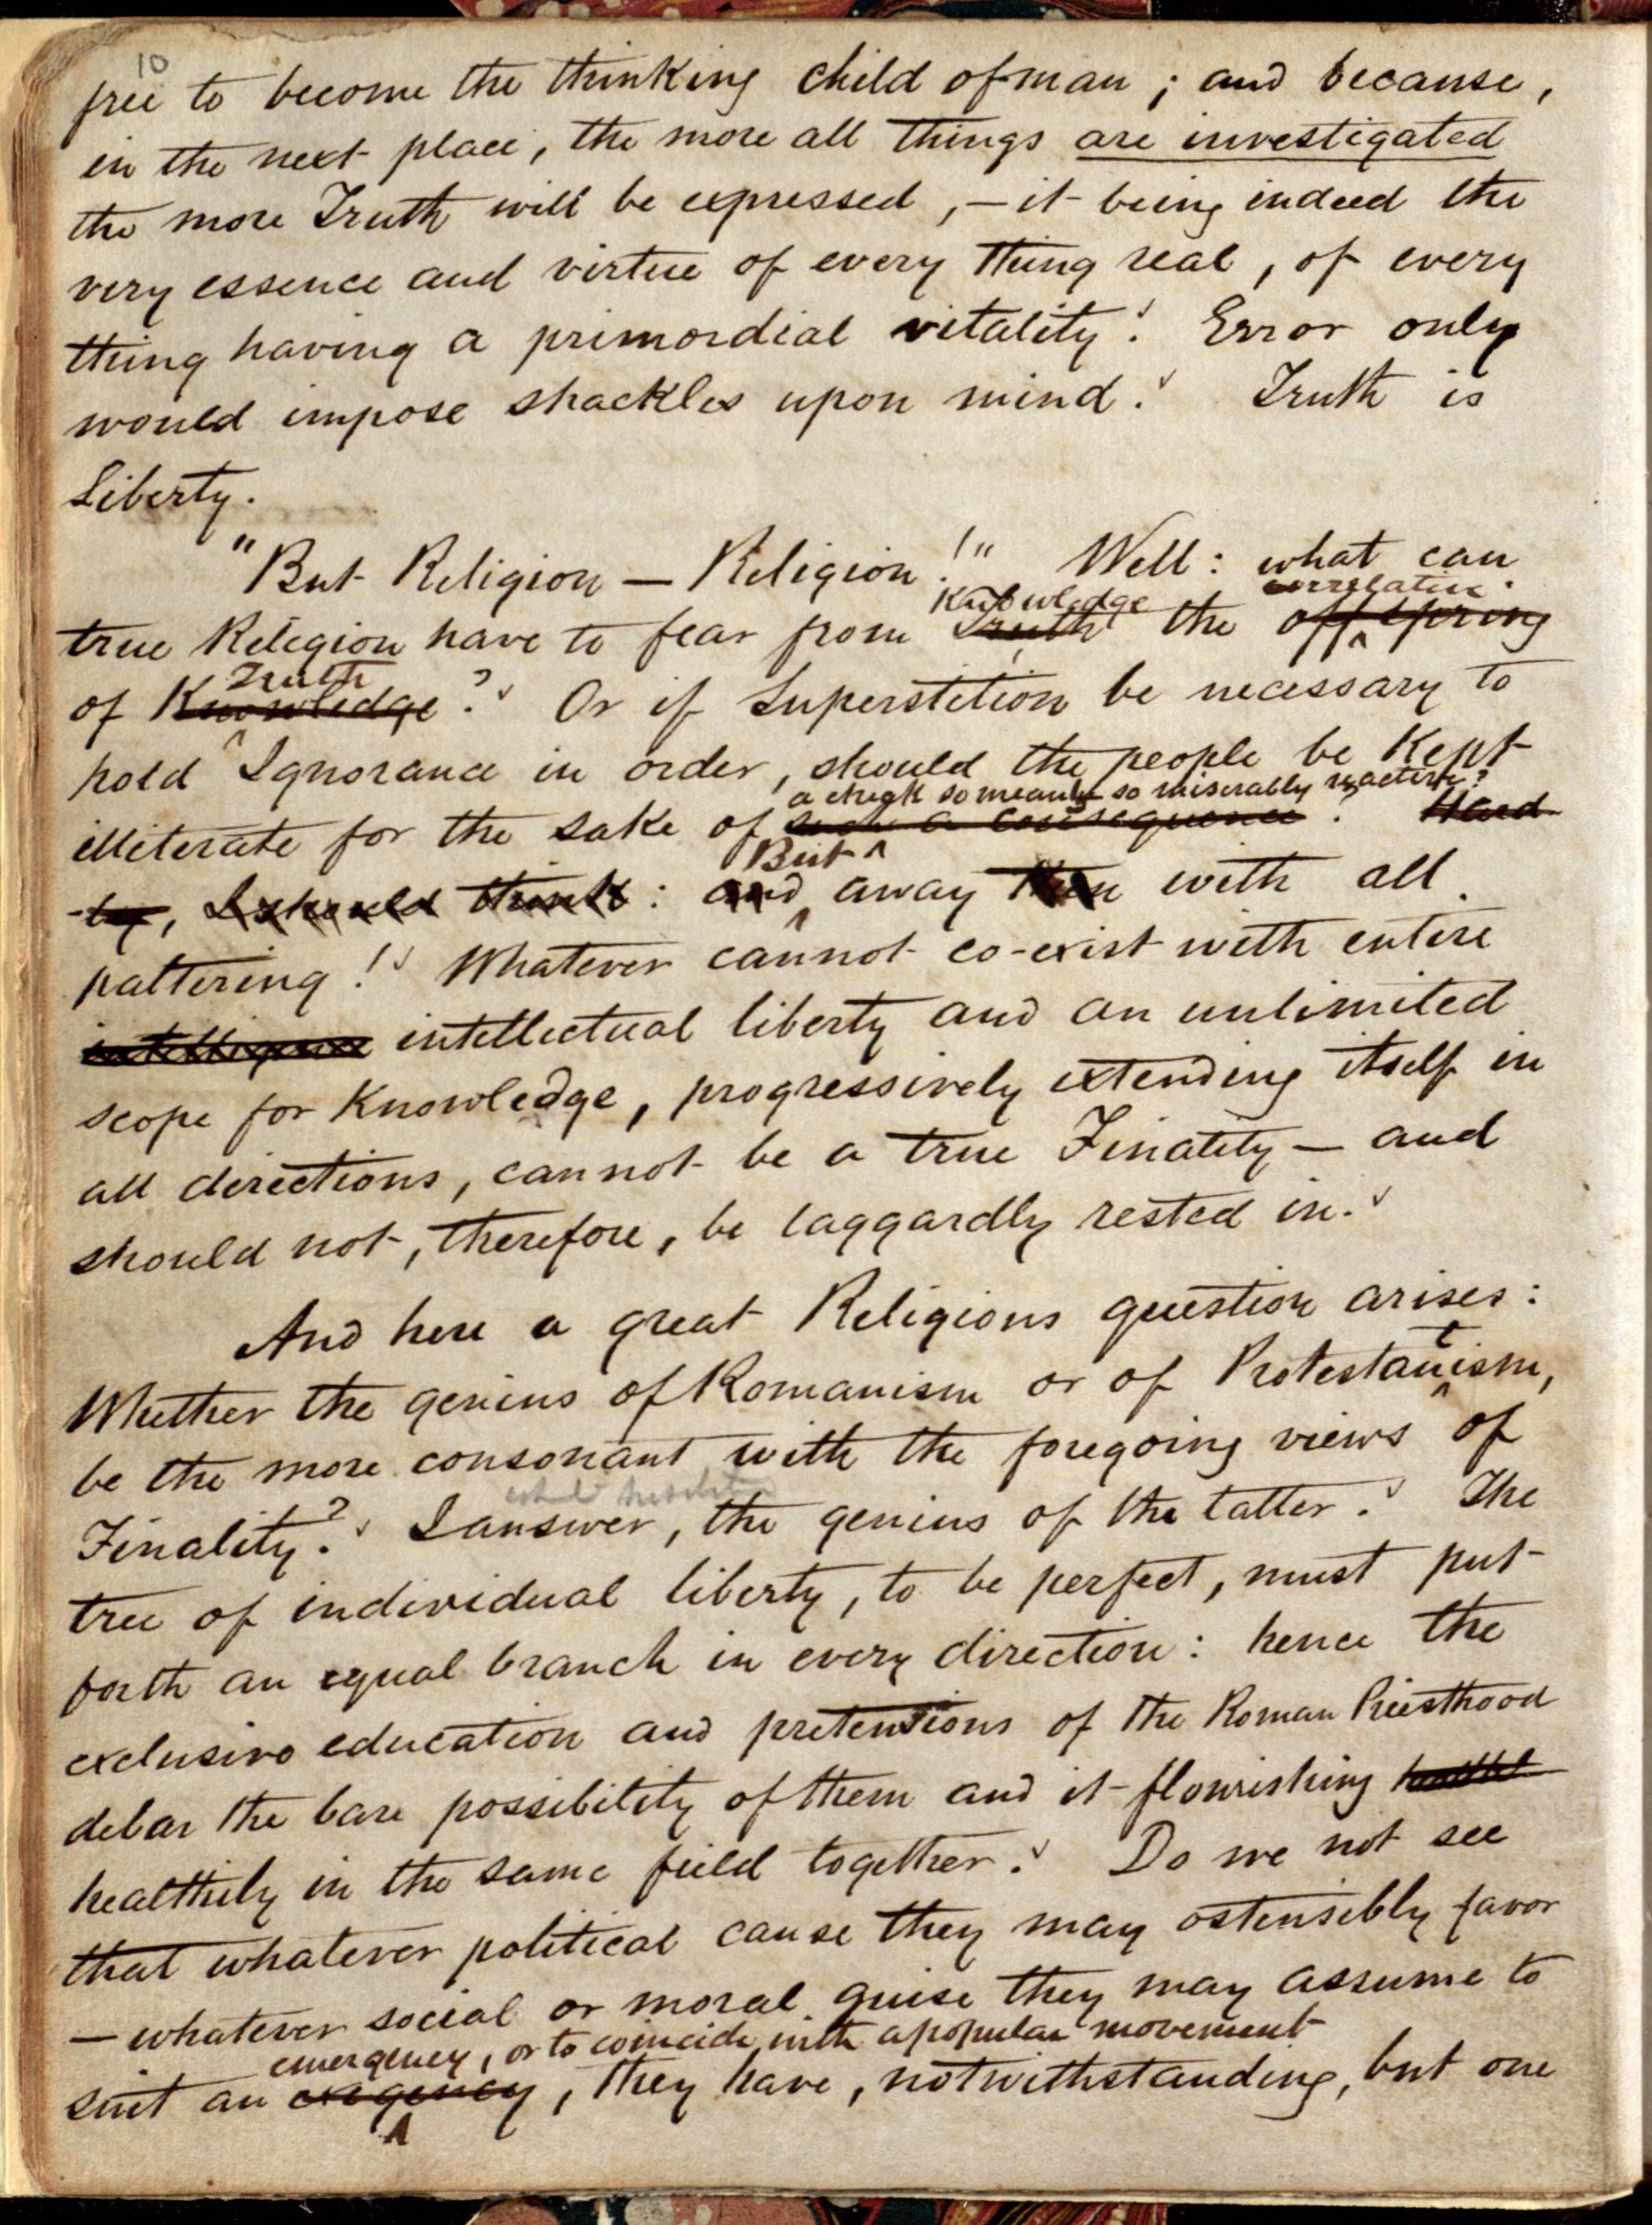 10
free to become the thinking child of man ; and because,
in the next place, the more all things are investigated
the more Truth will be expressed, – it being indeed the
very essence and virtue of every thing real, of every
thing having a primordial vitality. Error only
would impose shackles upon mind. Truth is
Liberty.
"But Religion — Religion!" Well: what can
Knowledge correlative
true Religion have to fear from Truth the offspring
Truth
of Knowledge? Or if Superstition be necessary to
hold Ignorance in order, should the people be Kept
a check so meanly so miserably inactive?
illiterate for the sake of such a consequence? Hard-
But
ly, I should think: and away then with all
paltering! Whatever cannot co-exist with entire
intelligence intellectual liberty and an unlimited
scope for Knowledge, progressively extending itself in
all directions, cannot be a true Finality — and
should not, therefore, be laggardly rested in.
And here a great Religious question arises:
t
Whether the genius of Romanism or of Protestanism,
be the more consonant with the foregoing views of
Finality? I answer, the genius of the latter. The
tree of individual liberty, to be perfect, must put
forth an equal branch in every direction: hence the
exclusive education and pretensions of the Roman Priesthood
debar the bare possibility of them and it flourishing
healthily in the same field together. Do we not see
that whatever political cause they may ostensibly favor
— whatever social or moral guise they may assume to
emergency, or to coincide with a popular movement
suit an exigency, they have, notwithstanding, but one